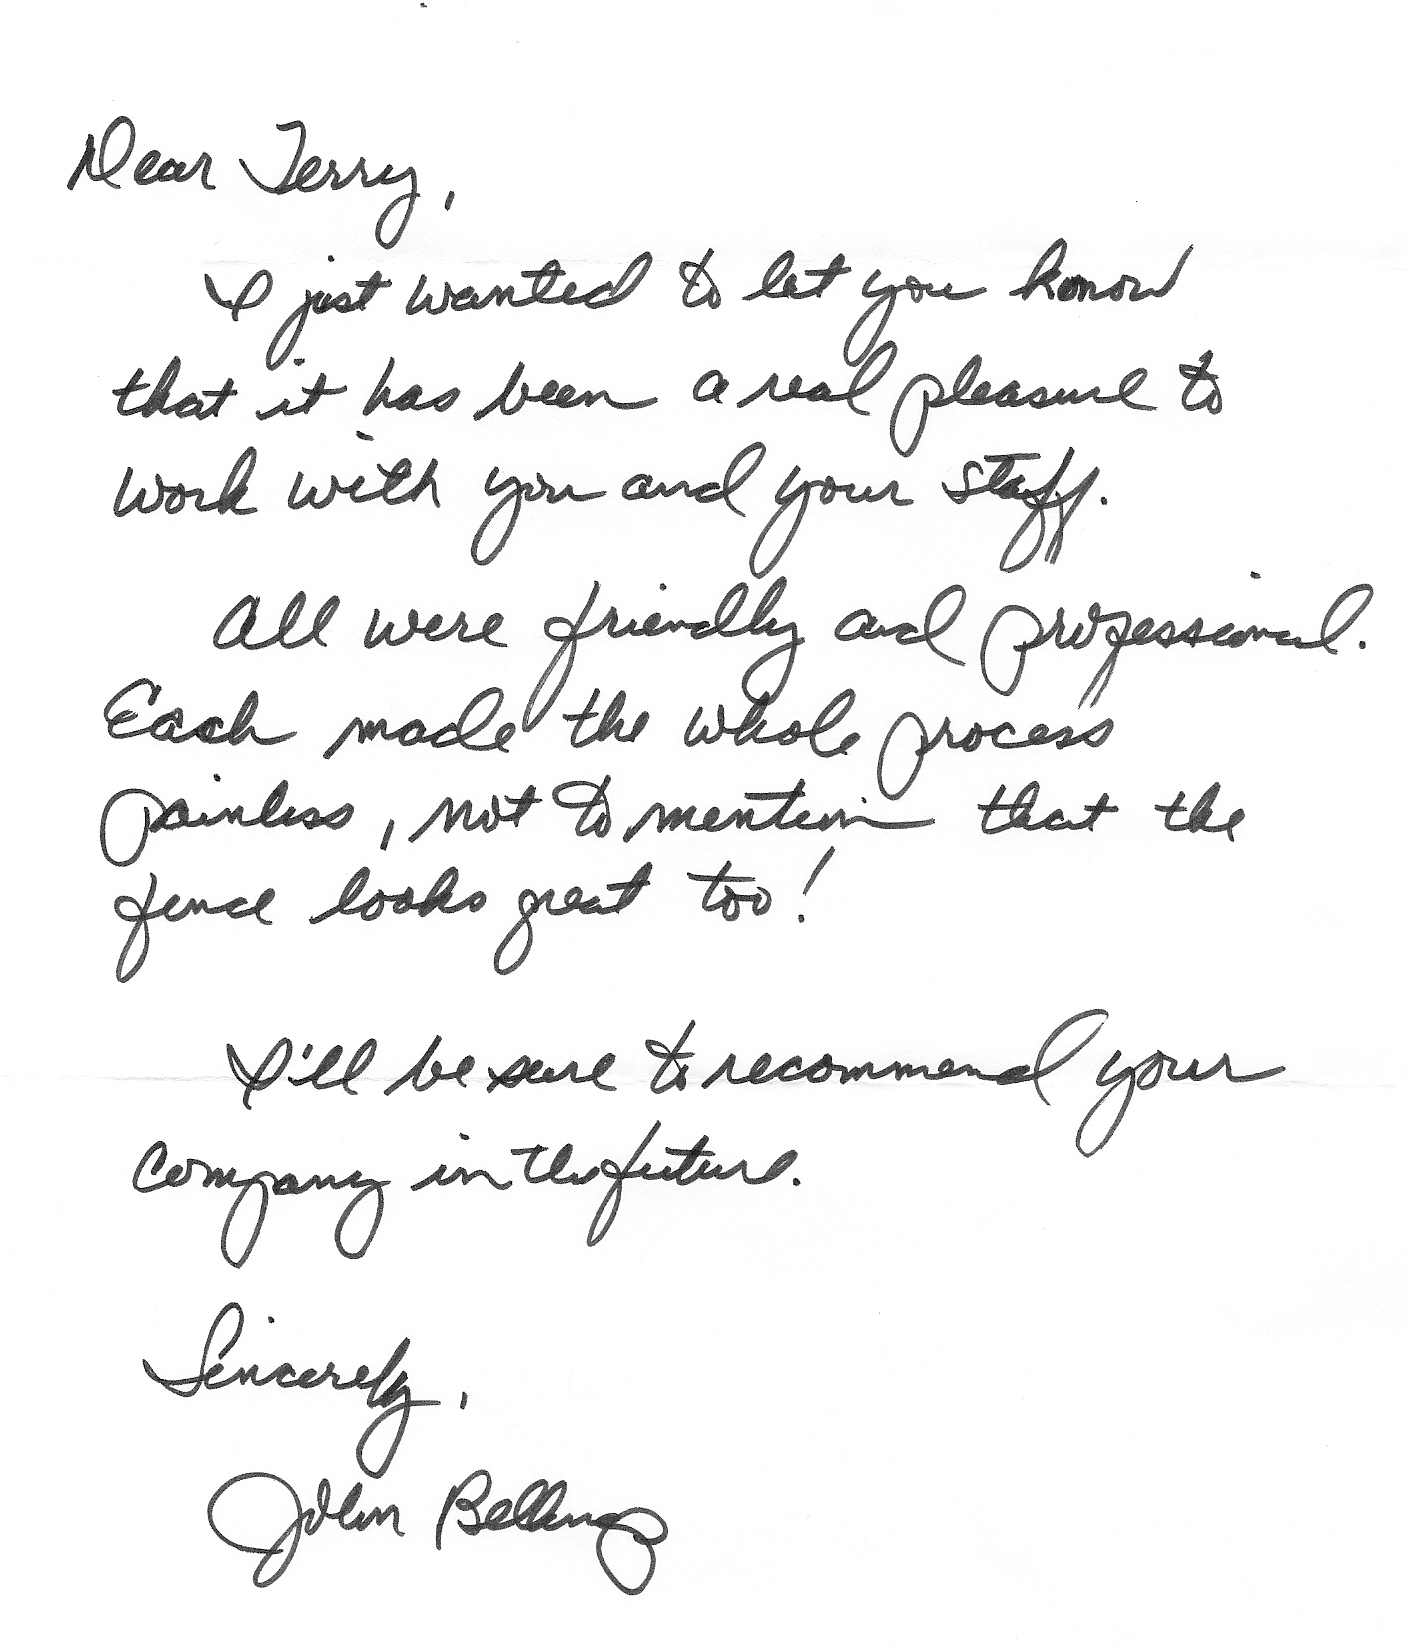 Dear Terry,
I just wanted to let you know
that it has been a real pleasure to
work with you and your staff.
All were friendly and professional.
Each made the whole process
painless, not to mention that the
fence looks great too!
I'll be sure to recommend your
company in the future.
Sincerely,
John